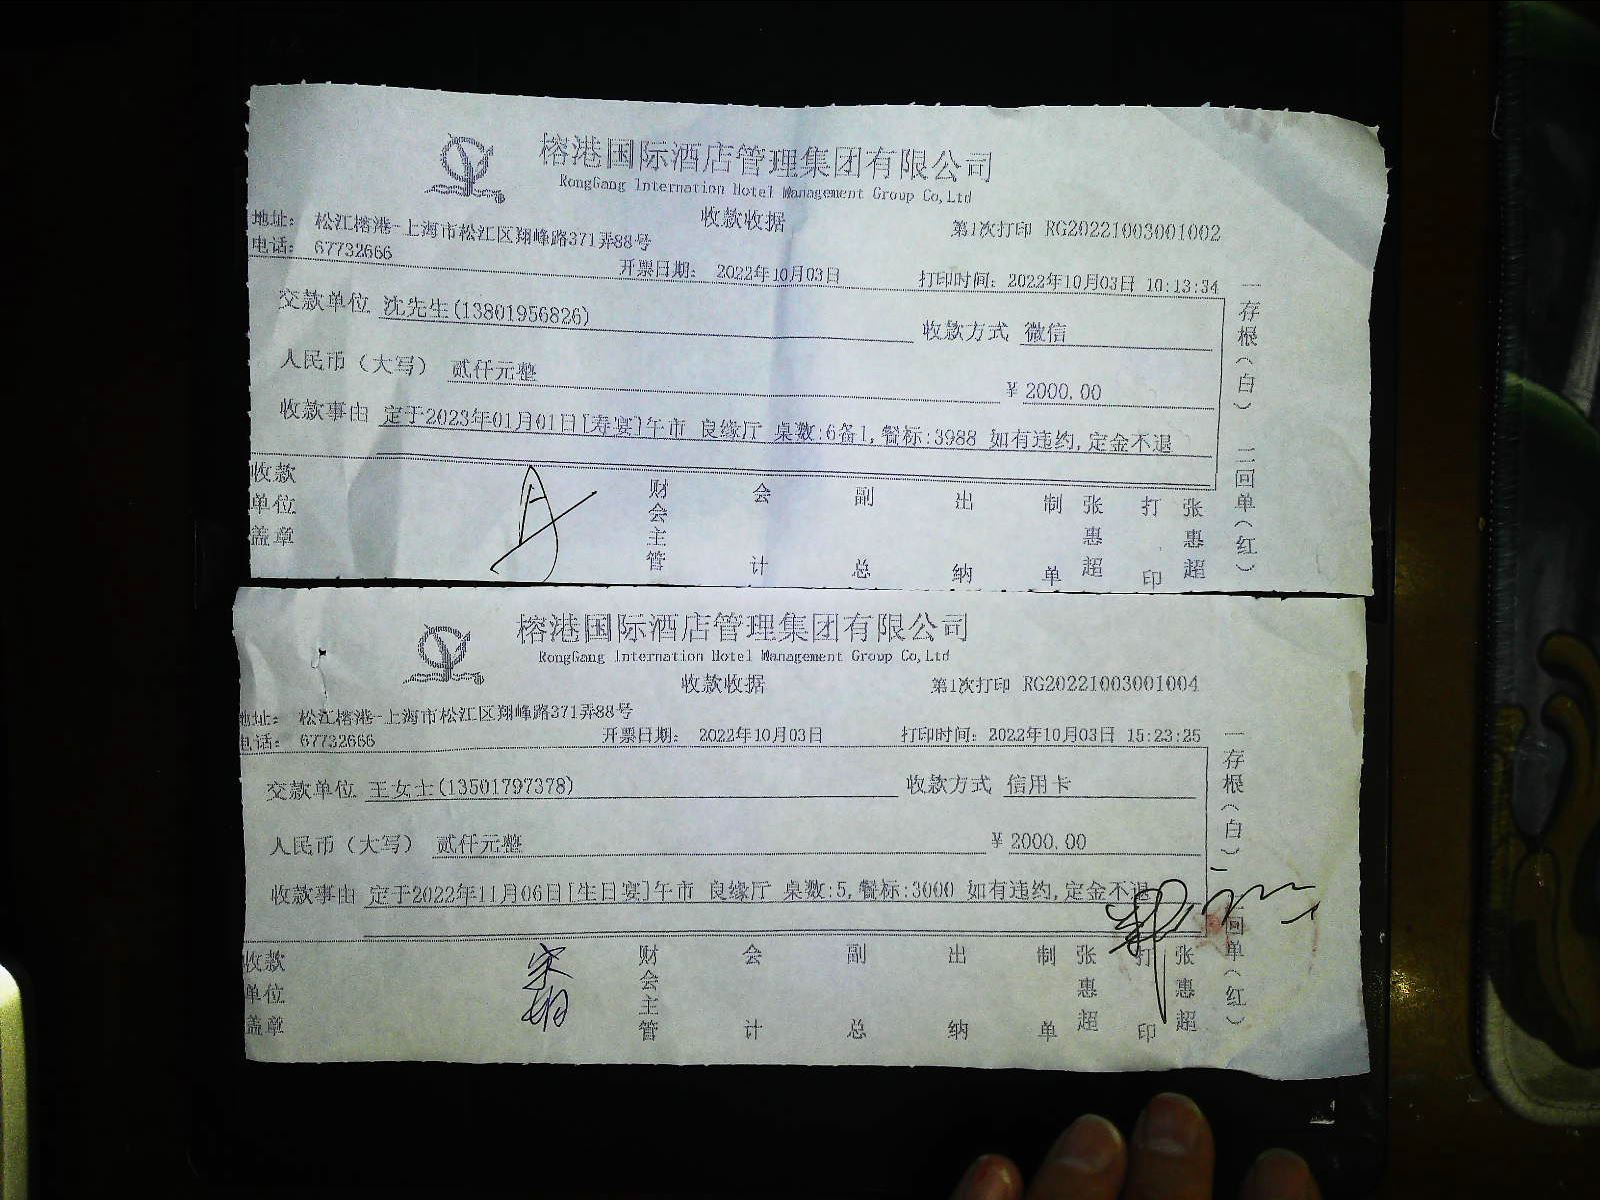 榕港国际酒店管理集团有限公司
RongGang Internation Hotel Management Group Co,Ltd
收款收据
第1次打印 RG20221003001002
地址： 松江榕港-上海市松江区翔峰路371弄88号
电话： 67732666
开票日期： 2022年10月03日
打印时间：2022年10月03日 10:13:34
交款单位 沈先生(13801956826)
收款方式 微信
人民币（大写） 贰仟元整
￥2000.00
收款事由 定于2023年01月01日[寿宴]午市 良缘厅 桌数:6备1,餐标:3988 如有违约,定金不退
收款单位盖章
财会主管
会计
副总
出纳
制单
张惠超
打印
张惠超
一存根（白）
二回单（红）
榕港国际酒店管理集团有限公司
RongGang Internation Hotel Management Group Co,Ltd
收款收据
第1次打印 RG20221003001004
地址： 松江榕港-上海市松江区翔峰路371弄88号
电话： 67732666
开票日期： 2022年10月03日
打印时间：2022年10月03日 15:23:25
交款单位 王女士(13501797378)
收款方式 信用卡
人民币（大写） 贰仟元整
￥2000.00
收款事由 定于2022年11月06日[生日宴]午市 良缘厅 桌数:5,餐标:3000 如有违约,定金不退
收款单位盖章
财会主管
会计
副总
出纳
制单
张惠超
打印
张惠超
一存根（白）
二回单（红）